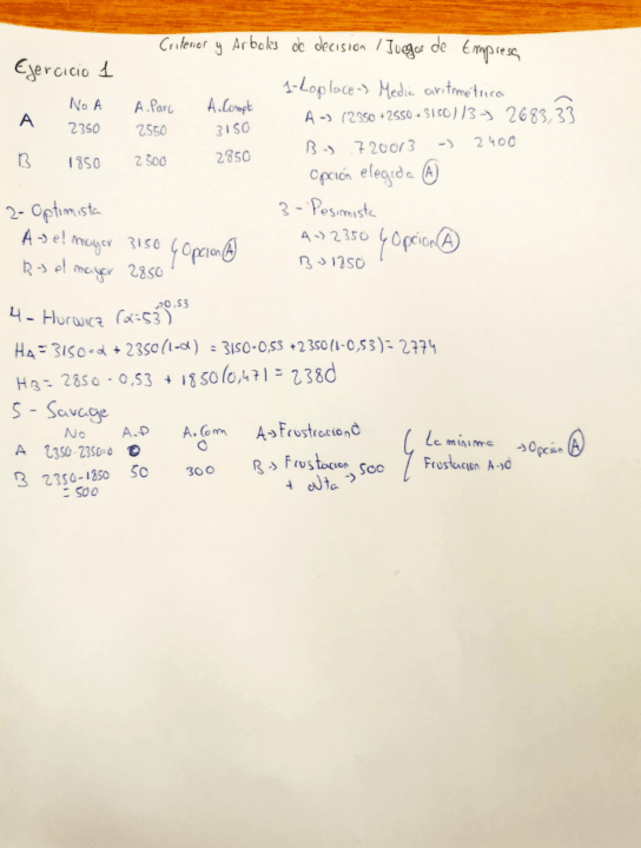 Criterios y Arboles de decision / Juegos de Empresa
Ejercicio 1
No A A.Parc A.Compt
A 2350 2550 3150
B 1850 2500 2850
1-Laplace-> Media aritmétrica
A -> (2350+2550+3150)/3 -> 2683,33
B -> 7200/3 -> 2400
Opción elegida (A)
2- Optimista
A -> el mayor 3150
B -> el mayor 2850
Opcion (A)
3 - Pesimista
A -> 2350
B -> 1850
Opcion (A)
4 - Hurwicz (α=53) ->0.53
HA = 3150·α + 2350(1-α) = 3150·0,53 + 2350(1-0,53) = 2774
HB = 2850 · 0,53 + 1850(0,47) = 2380
5 - Savage
No A.P A.Com
A 2350-2350=0 0 0
B 2350-1850 50 300
= 500
A -> Frustracion 0
B -> Frustacion
+ alta -> 500
La mínima
Frustacion A->0
-> Opción (A)